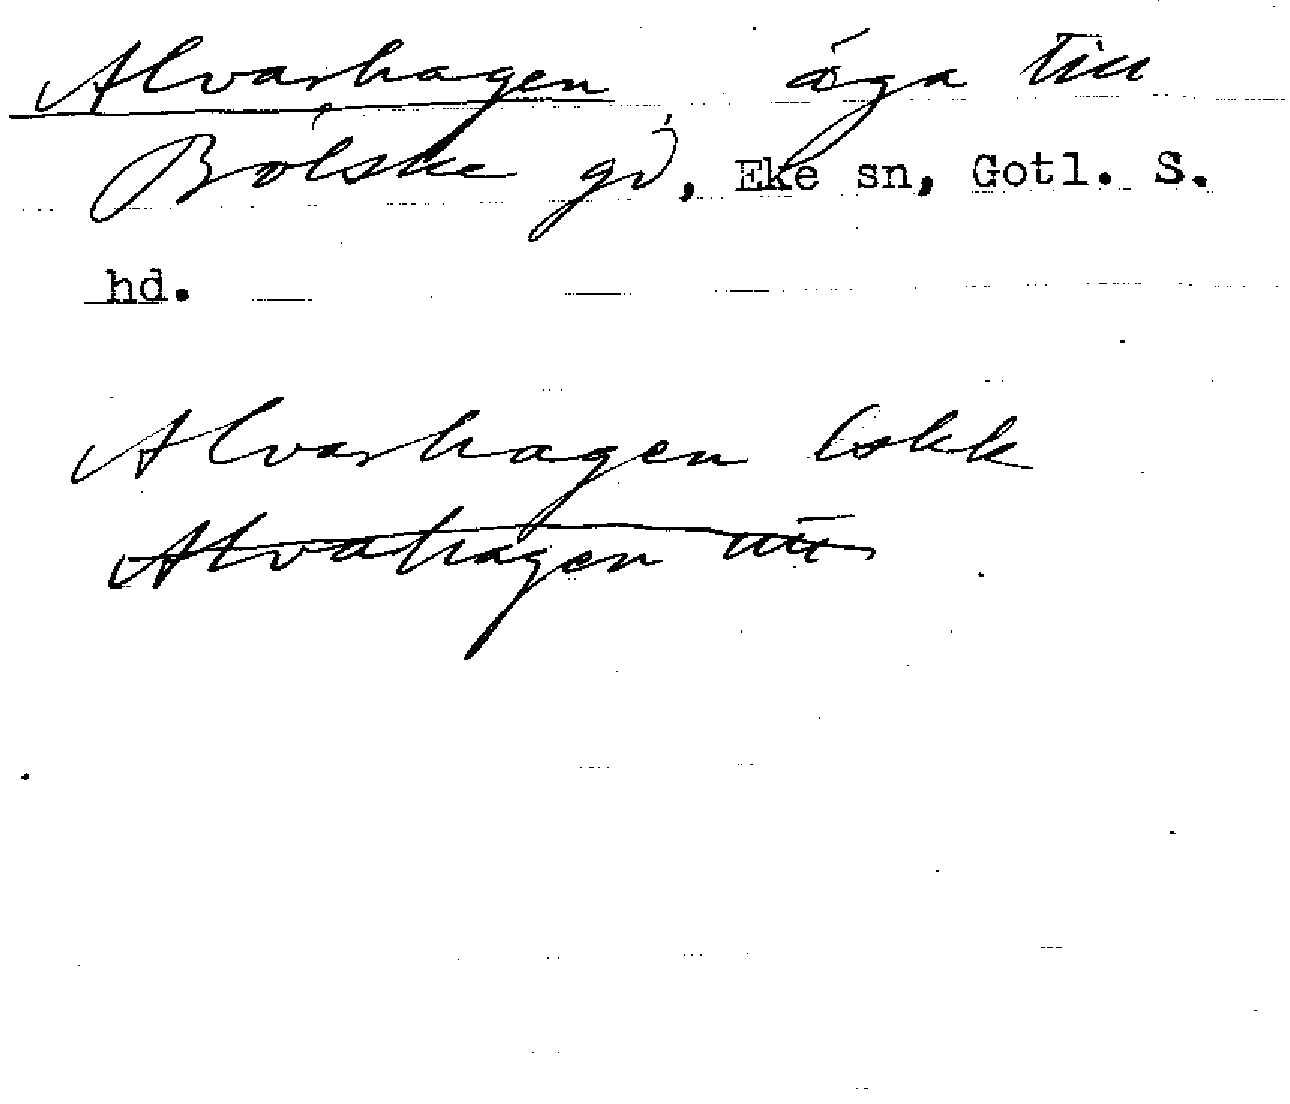 Alvarhagen äga till
Bolske gd, Eke sn, Gotl. S.
hd.
Alvarhagen lokk
Alvahagen